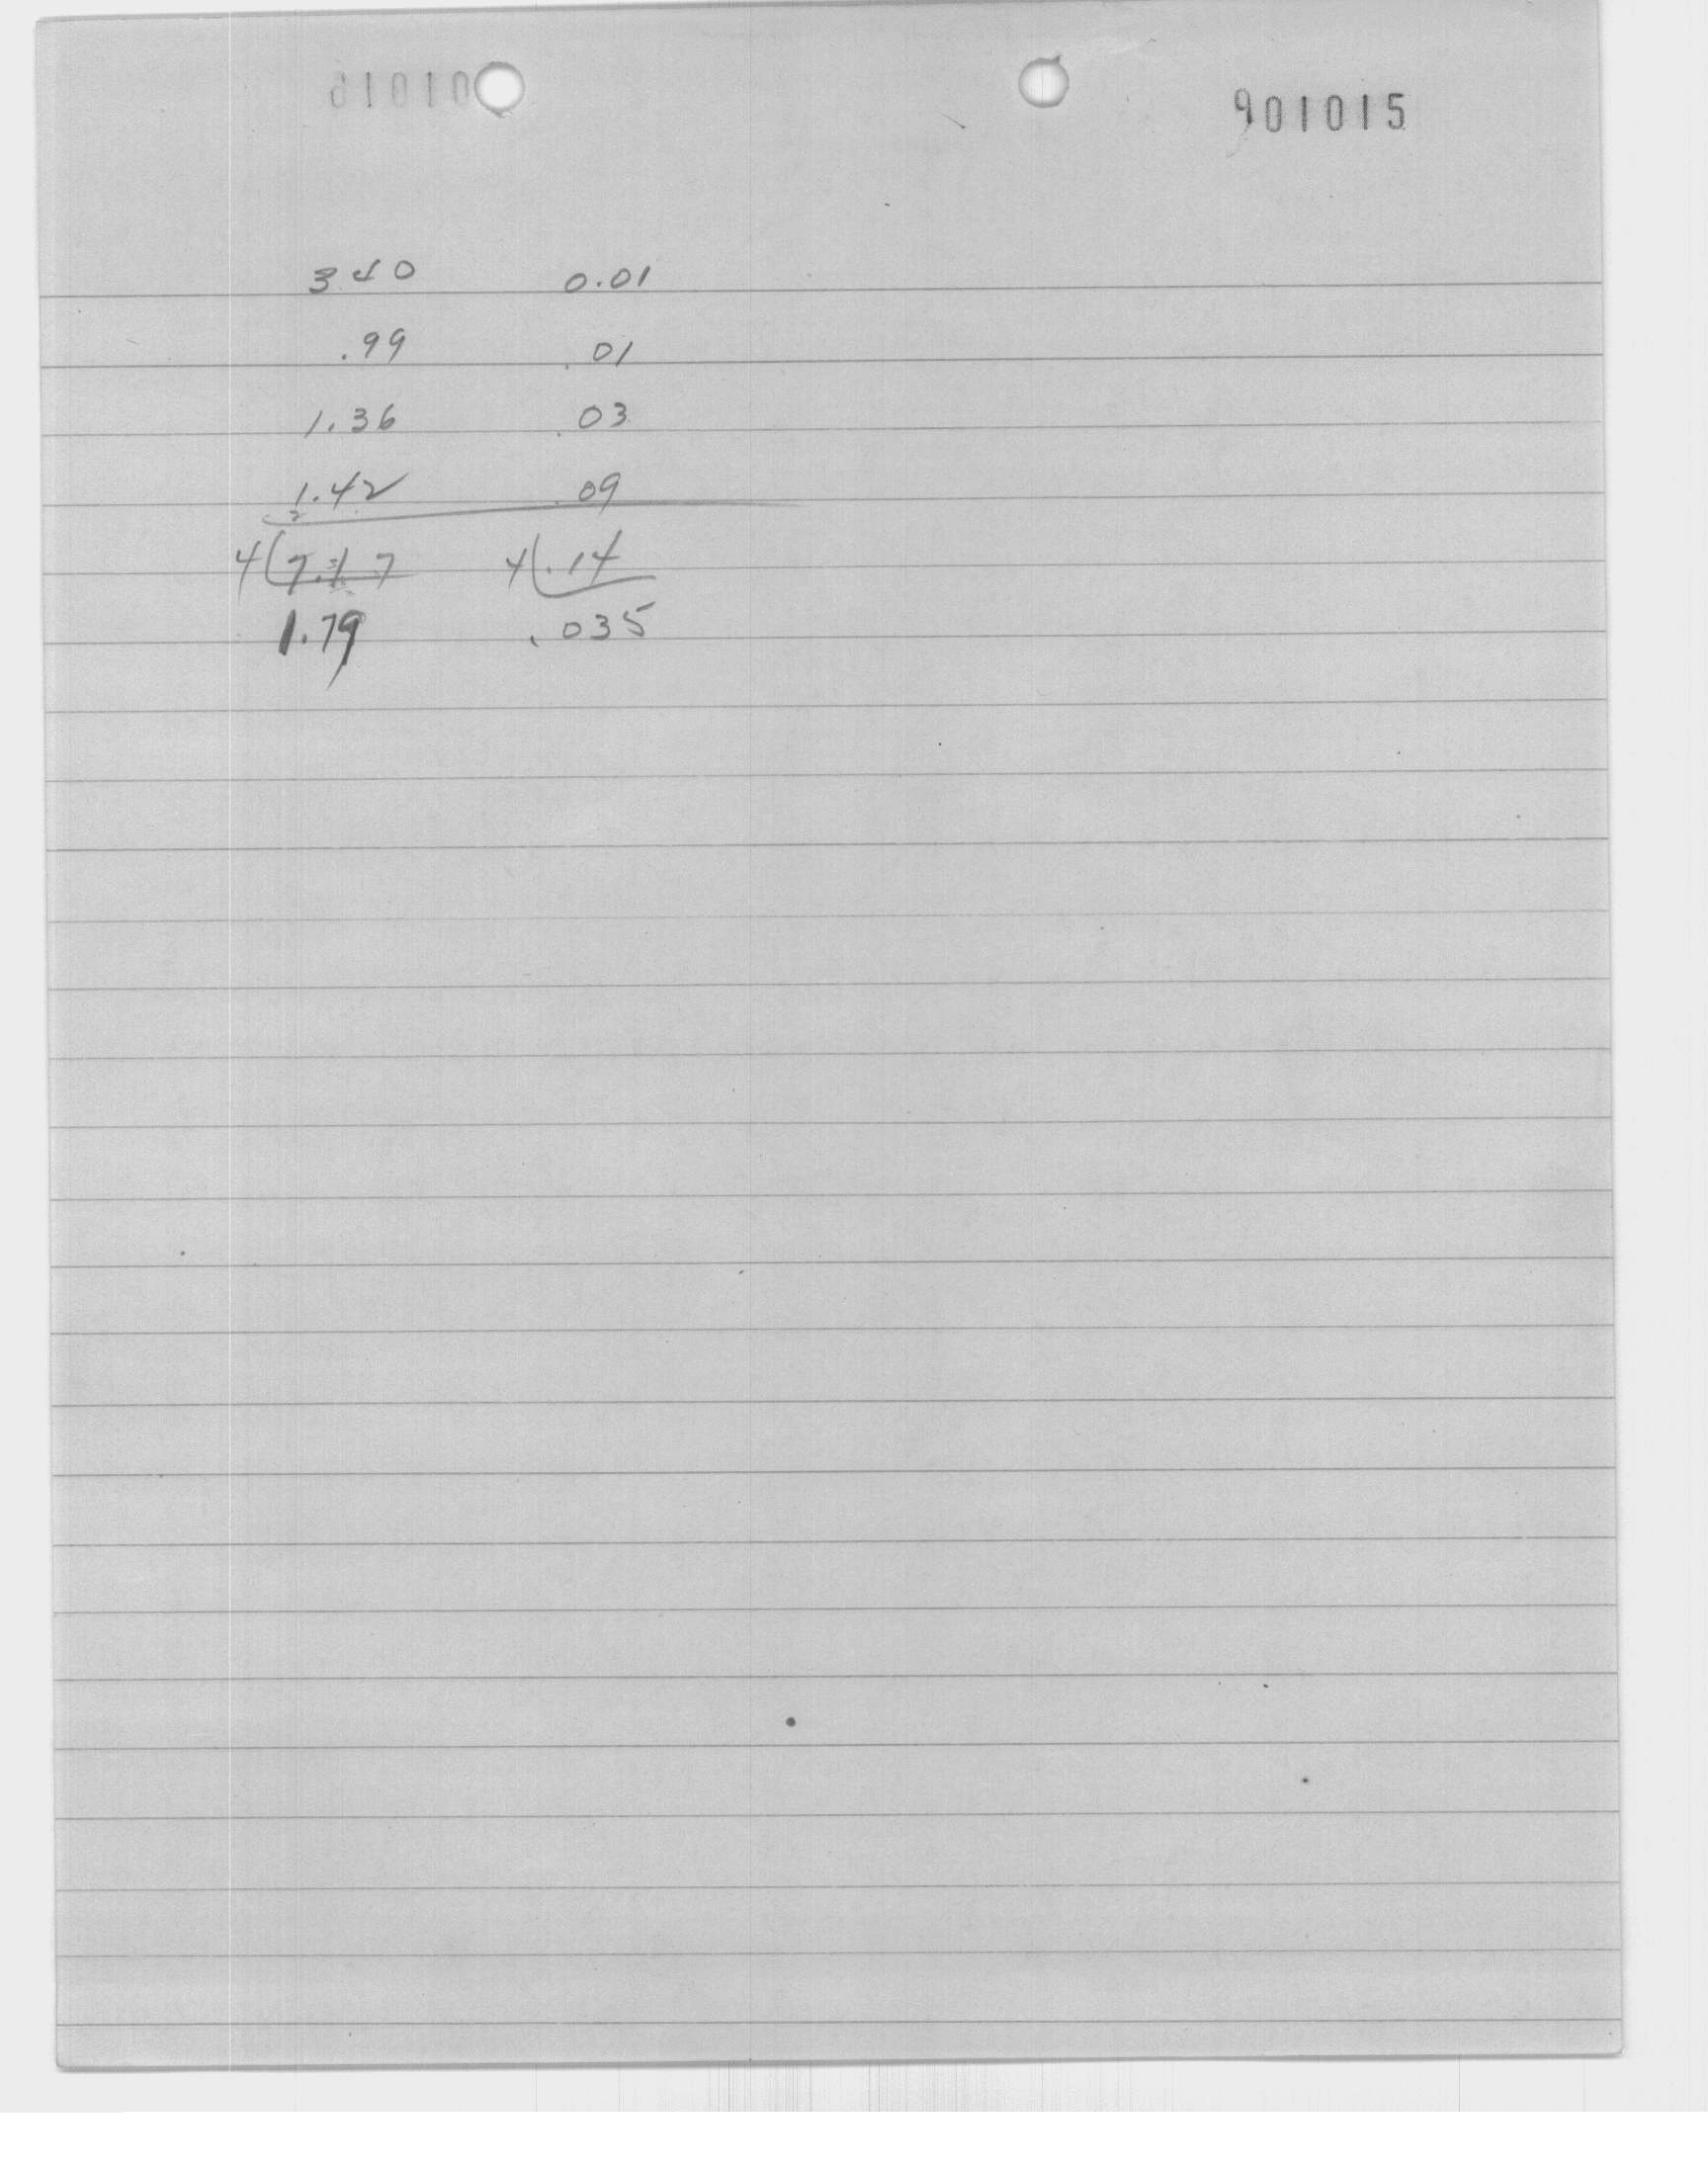 901015
3.40 0.01
.99 .01
1.36 .03
1.42 .09
4(7.17 4(.14
1.79 .035